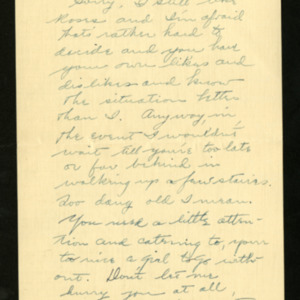 Sorry, I still
Roses and I'm afraid
thats rather hard to
decide and you have
your own likes and
dislikes and know
the situation better
than I. Anyway, in
the event I wouldn't
wait till you're too late
or far behind in
walking up a few stairs.
Too dang old I mean.
You need a little atten-
tion and catering to, your
to nice a girl to go with-
out. Don't let me
hurry you at all,